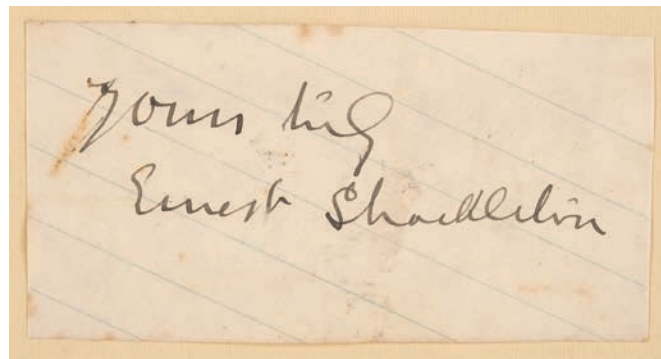 Yours truly
Ernest Shackleton